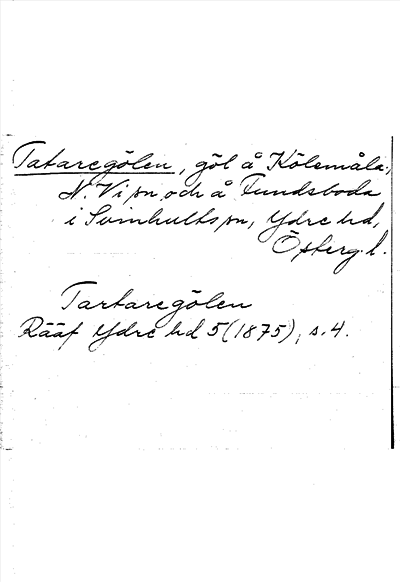 Tataregölen, göl å Kölemåla,
N. Vi sn, och å Fundsboda
i Svinhults sn, Ydre hd,
Österg. l.
Tartaregölen
Rääf Ydre hd 5 (1875), s. 4.